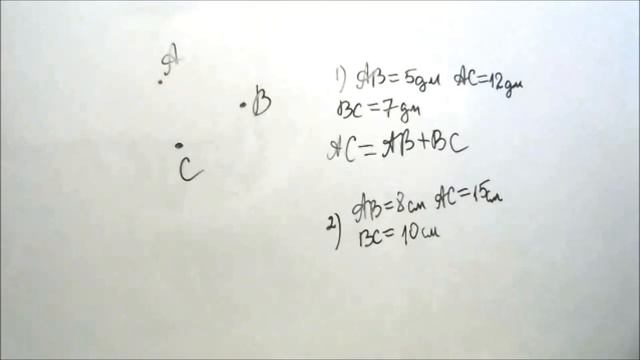 A
B
C
1) AB=5дм AC=12дм
BC=7дм
AC=AB+BC
2) AB=8см AC=15см
BC=10см